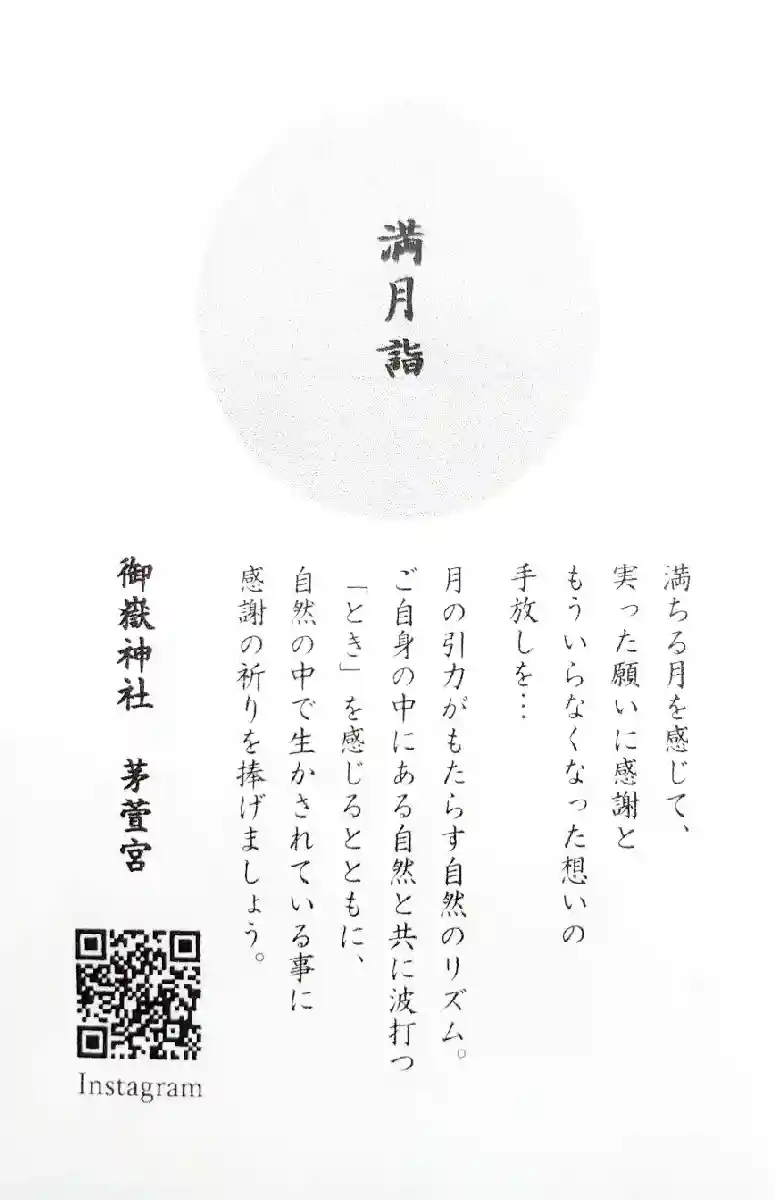 満月詣
満ちる月を感じて、
実った願いに感謝と
もういらなくなった想いの
手放しを…
月の引力がもたらす自然のリズム。
ご自身の中にある自然と共に波打つ
「とき」を感じるとともに、
自然の中で生かされている事に
感謝の祈りを捧げましょう。
御嶽神社 茅萱宮
Instagram